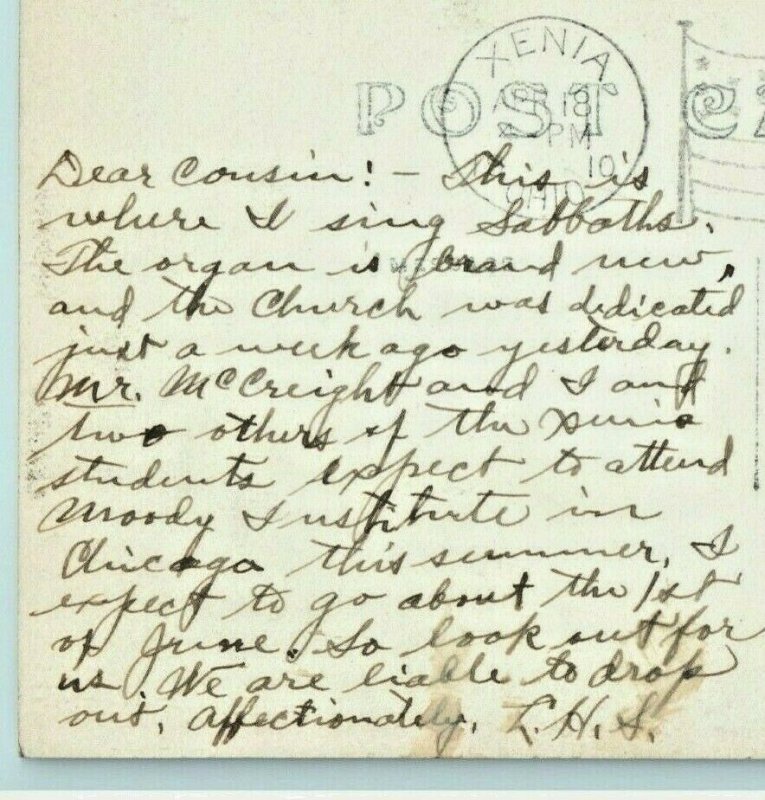 XENIA,
APR 18
PM
10
OHIO
POST CA
Dear Cousin! - This is
where I sing Sabbaths.
The organ is brand new,
and the Church was dedicated
just a week ago yesterday.
Mr. McCreight and I and
two others of the Xenia
students expect to attend
Moody Institute in
Chicago this summer. I
expect to go about the 1st
of June. So look out for
us. We are liable to drop
out. Affectionately, L.H.S.